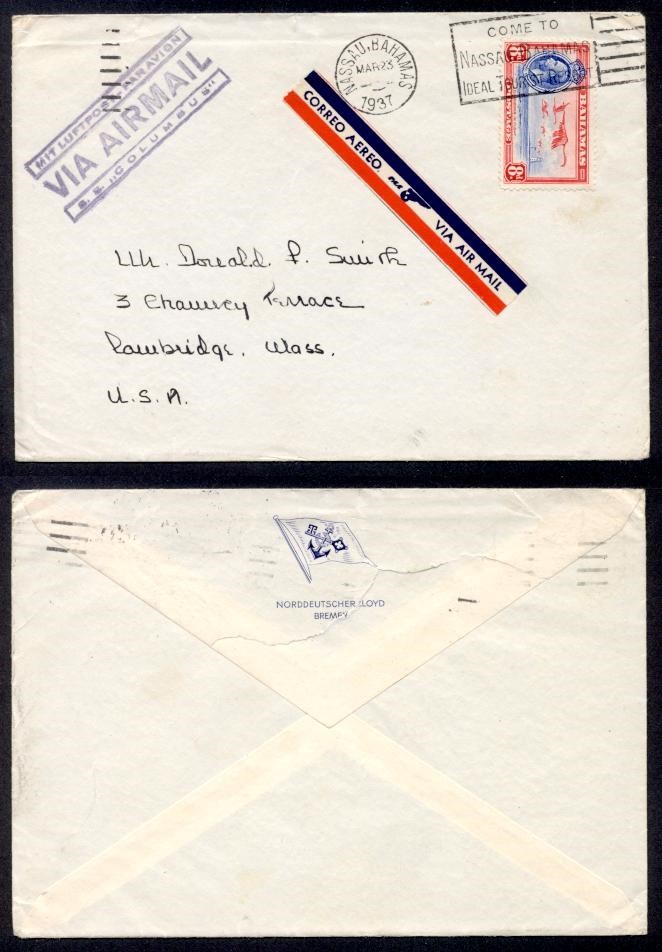 MIT LUFTPOST PAR AVION
VIA AIRMAIL
S. S. „COLUMBUS"
NASSAU, BAHAMAS
MAR 23
1937
COME TO
NASSAU BAHAMAS
IDEAL TOURIST RESORT
BAHAMAS
8D
CORREO AEREO VIA AIR MAIL
Mr. Donald P. Smith
3 Chauncy Terrace
Cambridge, Mass.
U.S.A.
NORDDEUTSCHER LLOYD
BREMEN